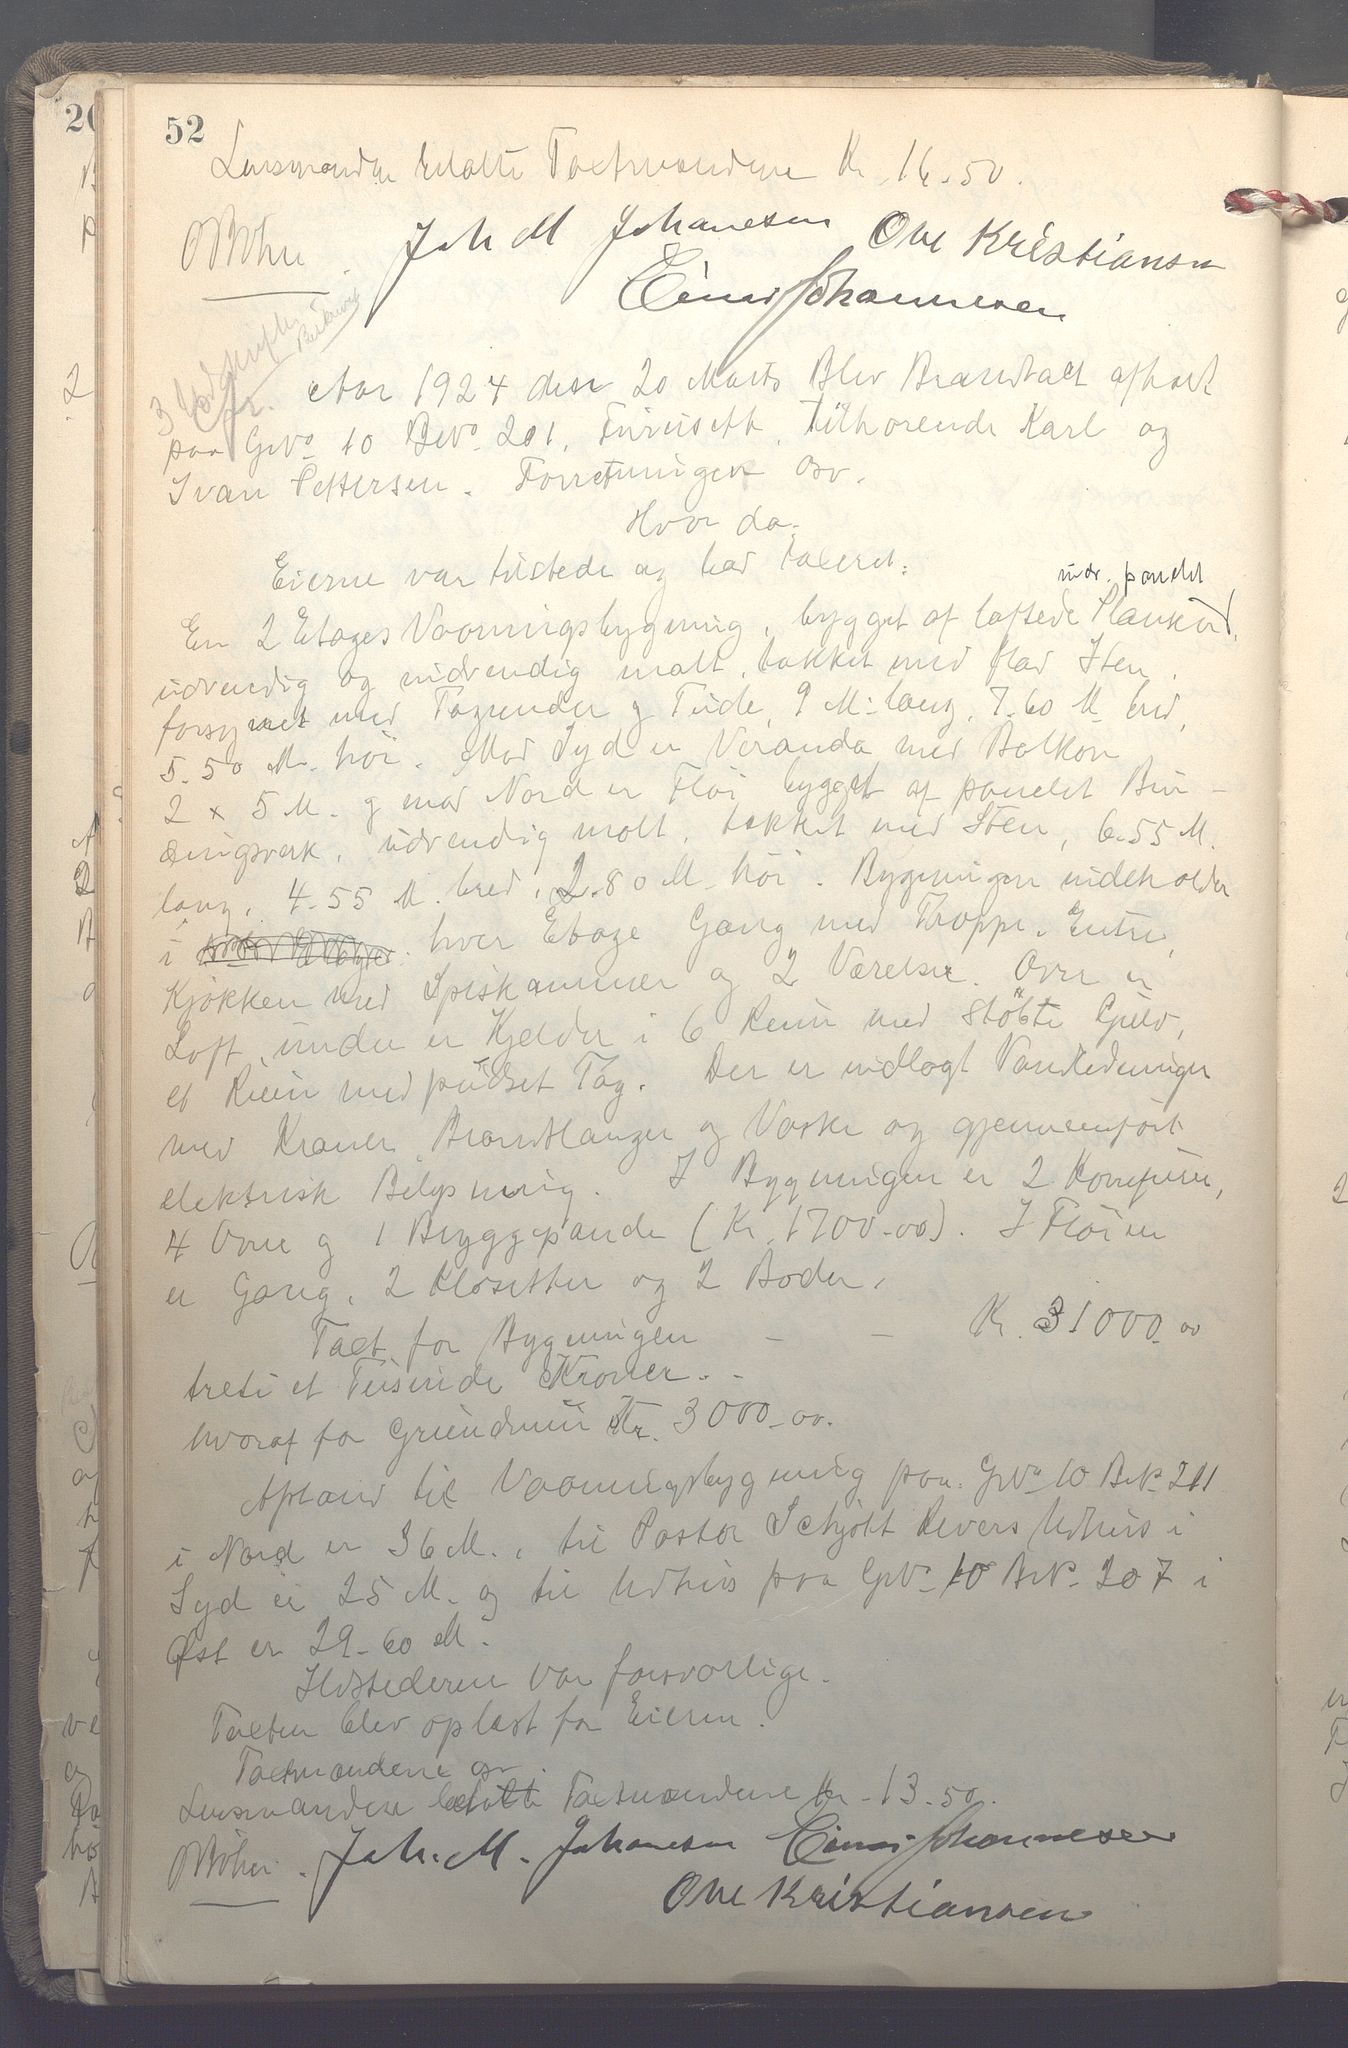 52
Lensmanden betalte Taxtmændene Kr. 16.50.
Joh M Johanesen Ove Kristiansen
Einar Johannesen
Aar 1924 den 20 Marts Blev Brandtaxt afholt
paa Gno 10 Bno 201, Furusett, tilhørende Karl og
Ivar Pettersen. Forretningen osv.
Hvor da:
Eierne var tilstede og lod taxeret:
indv. panelt
En 2 Etages Vaaningsbygning, bygget af laftede Plankev.
udvendig og indvendig malt, tækket med flad Sten,
forsynet med Tagrender og Tude, 9 M. lang, 7.60 M bred,
5.50 M. høi. Mod Syd er Veranda med Balkon
2 x 5 M. og mod Nord er Fløi bygget af panelt Bin-
dingsverk, udvendig malt, tækket med Sten, 6.55 M.
lang, 4.55 M. bred, 2.80 M. høi. Bygningen indeholder
i hver Etage Gang med Trappe, Entre,
Kjøkken med Spiskammer og 2 Værelser. Over er
Loft, under er Kjelder i 6 Rum med støbte Gulv,
et Rum med pudset Tag. Der er indlagt Vandledninger
med Kraner, Brandslanger og Vaske og gjennemført
elektrisk Belysning. I Bygningen er 2 Komfurer,
4 Ovne og 1 Bryggepande (Kr. 1700.00). I Fløien
er Gang, 2 Klosetter og 2 Boder.
Taxt for Bygningen - - Kr. 31000.00
treti et Tusinde Kroner. -
hvoraf for Grundmur Kr. 3000.00.
Afstand til Vaaningsbygning paa Gno 10 Bno 211
i Nord er 36 M., til Pastor Schjøtt Revers Udhus i
Syd er 25 M. og til Udhus paa Gno 10 Bno 207 i
Øst er 29.60 M.
Ildstederne var forsvarlige.
Taxten blev oplæst for Eieren.
Taxtmændene osv.
Lensmanden betalte Taxtmændene Kr. 13.50.
Joh. M. Johanesen Einar Johannesen
Ove Kristiansen